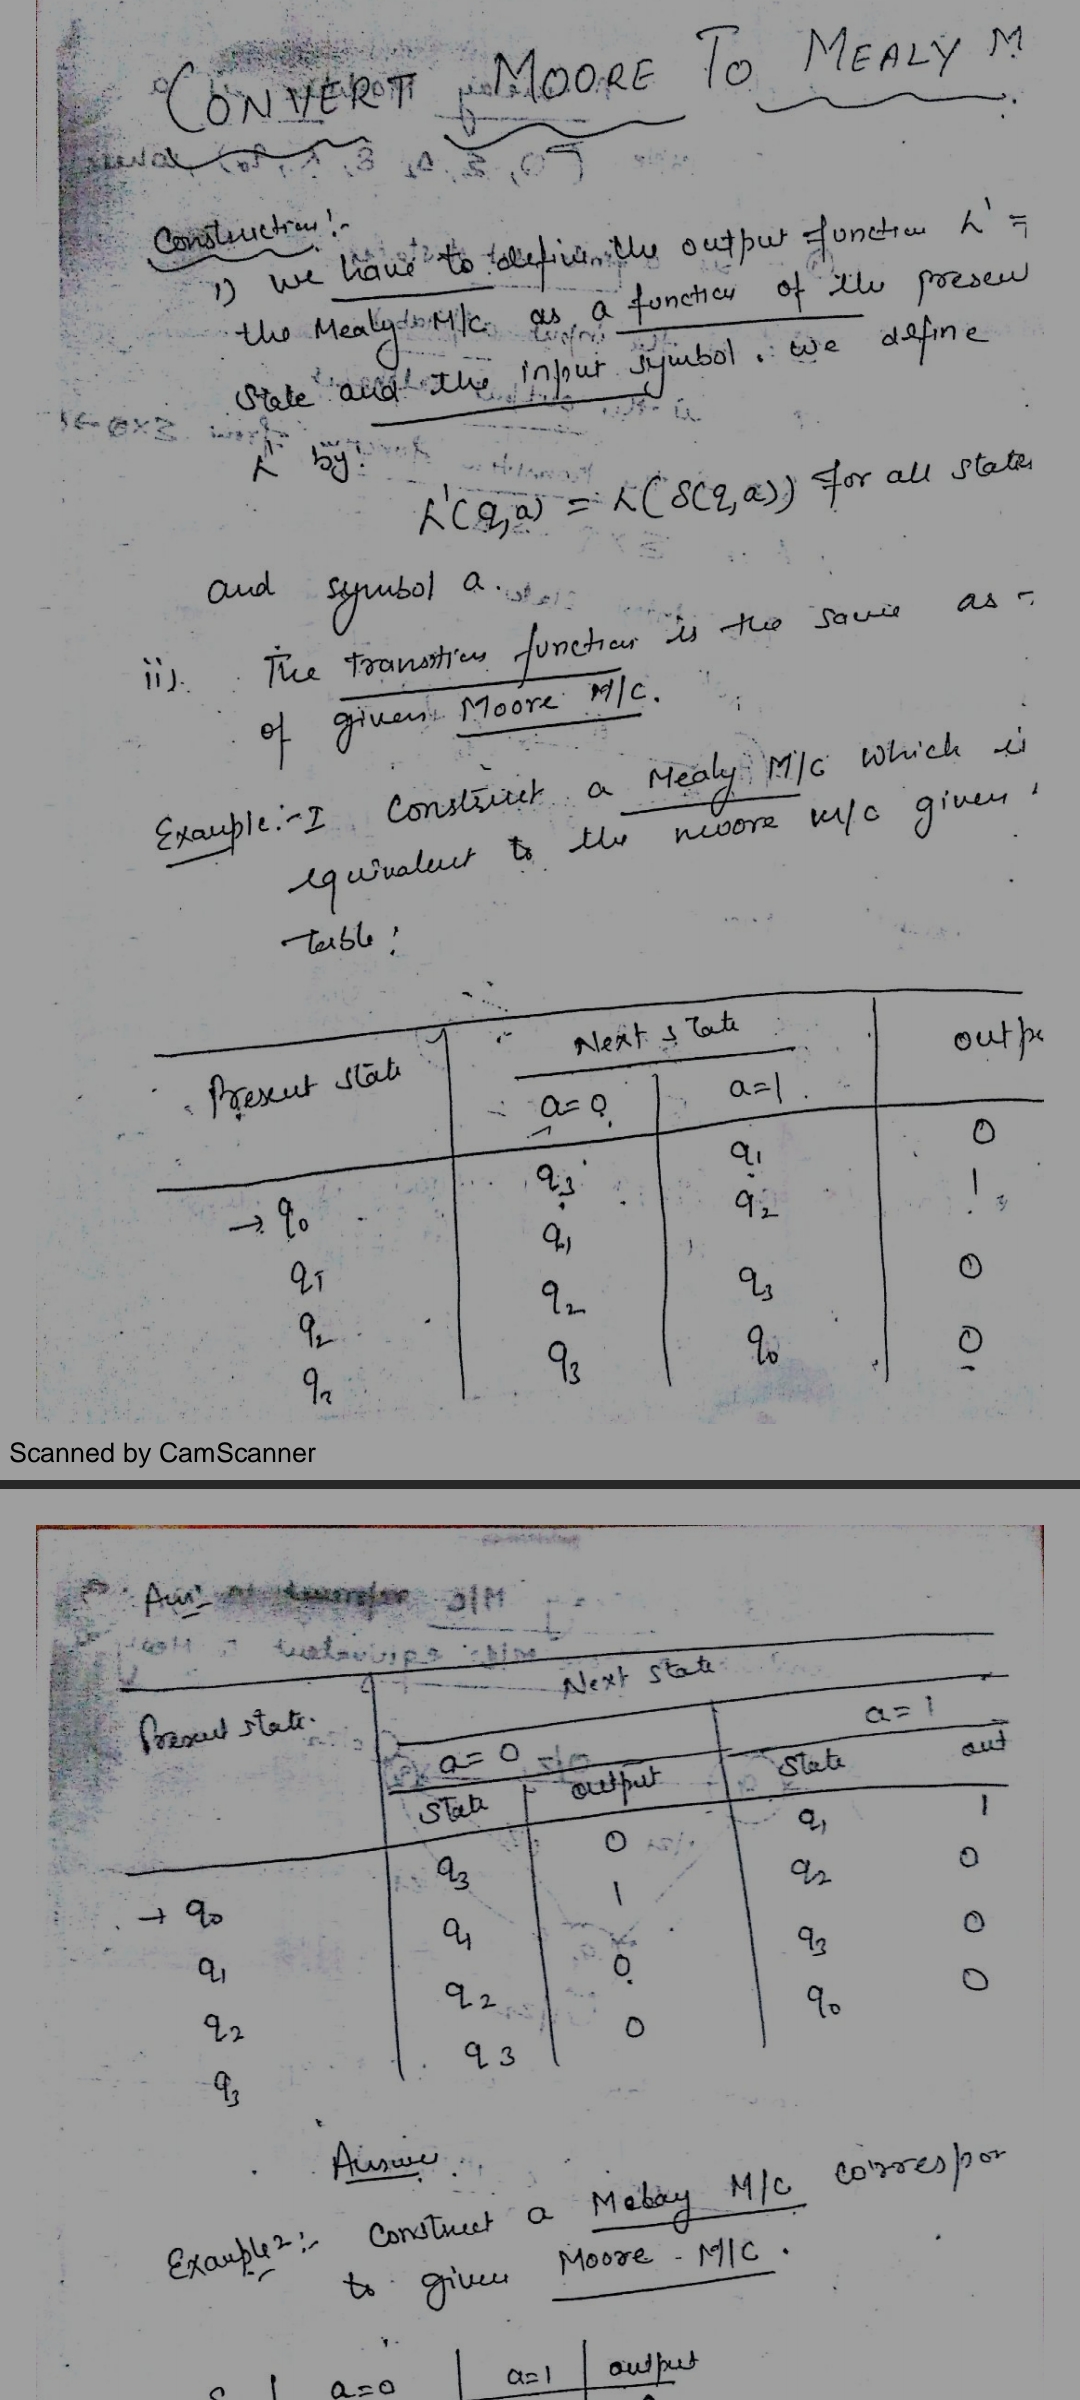 CONVERT MOORE TO MEALY M
Construction:-
i) we have to define the output function λ' =
the Mealy M/c as a function of the presen
state and the input symbol. we define
λ' by:
λ'(q,a) = λ(δ(q,a)) for all states
and symbol a.
ii). The transition function is the same as
of given Moore M/c.
Example:-I Construct a Mealy M/c which is
equivalent to the moore m/c given
Table:
Next state
outpu
Present state
a=0 a=1
→ q0 q3 q1 0
q1 q1 q2 1
q2 q2 q3 0
q3 q3 q0 0
Scanned by CamScanner
Ans:-
Next state
Present state.
a=0 a=1
State output State out
→ q0 q3 0 q1 1
q1 q1 1 q2 0
q2 q2 0 q3 0
q3 q3 0 q0 0
Answer.
Example2:- Construct a Melay M/C correspon
to given Moore - M/C.
a=0 a=1 output